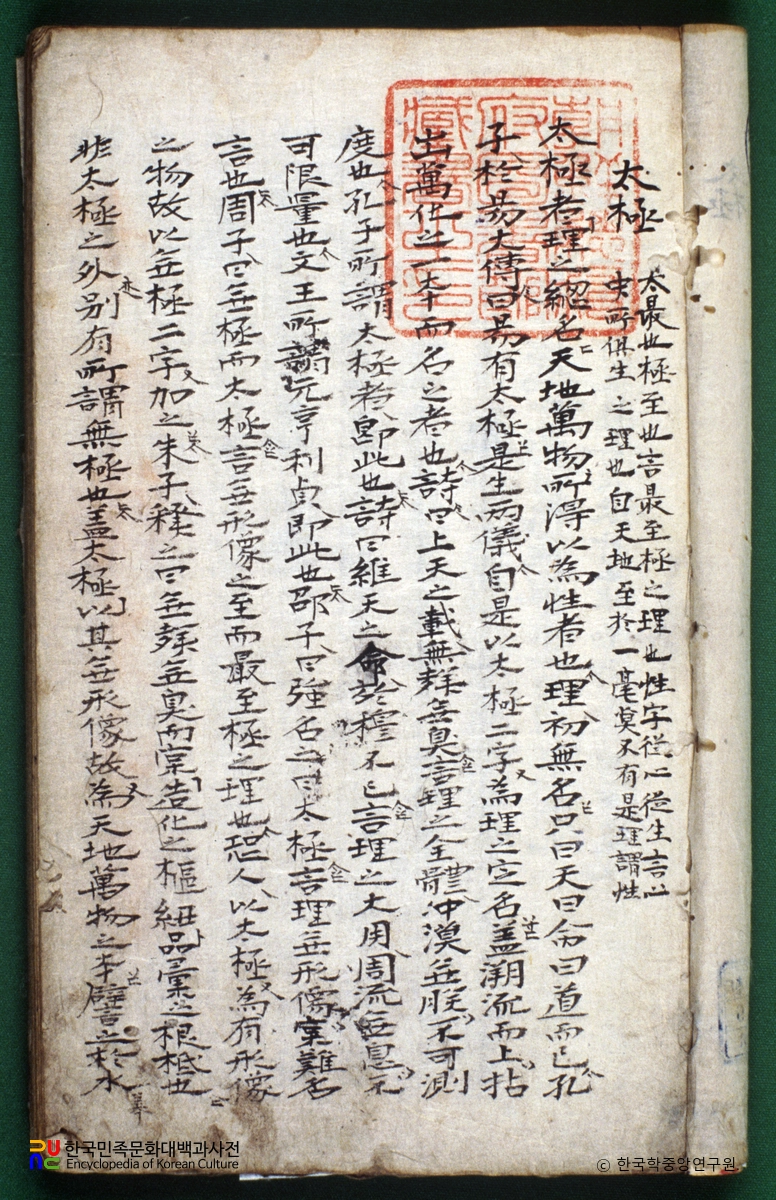 太極
太最也極至也言最至極之理也性字從心從生言心
中所俱生之理也自天地至於一毫莫不有是理謂性
太極者理之總名天地萬物所得以為性者也理初無名只曰天曰命曰道而已孔
子於易大傳曰易有太極是生兩儀自是以太極二字為理之定名盖溯流而上拈
出萬化之一本而名之者也詩曰上天之載無聲無臭言理之全體冲漠無朕不可測
度也孔子所謂太極者卽此也詩曰維天之命於穆不已言理之大用周流無息不
可限量也文王所謂元亨利貞卽此也邵子曰強名之曰太極言理無形像寔難名
言也周子曰無極而太極言無形像之至而最至極之理也恐人以太極為有形像
之物故以無極二字加之朱子釋之曰無聲無臭而寔造化之樞紐品彙之根柢也
非太極之外別有所謂無極也盖太極以其無形像故為天地萬物之本譬之於水
한국민족문화대백과사전
Encyclopedia of Korean Culture
© 한국학중앙연구원